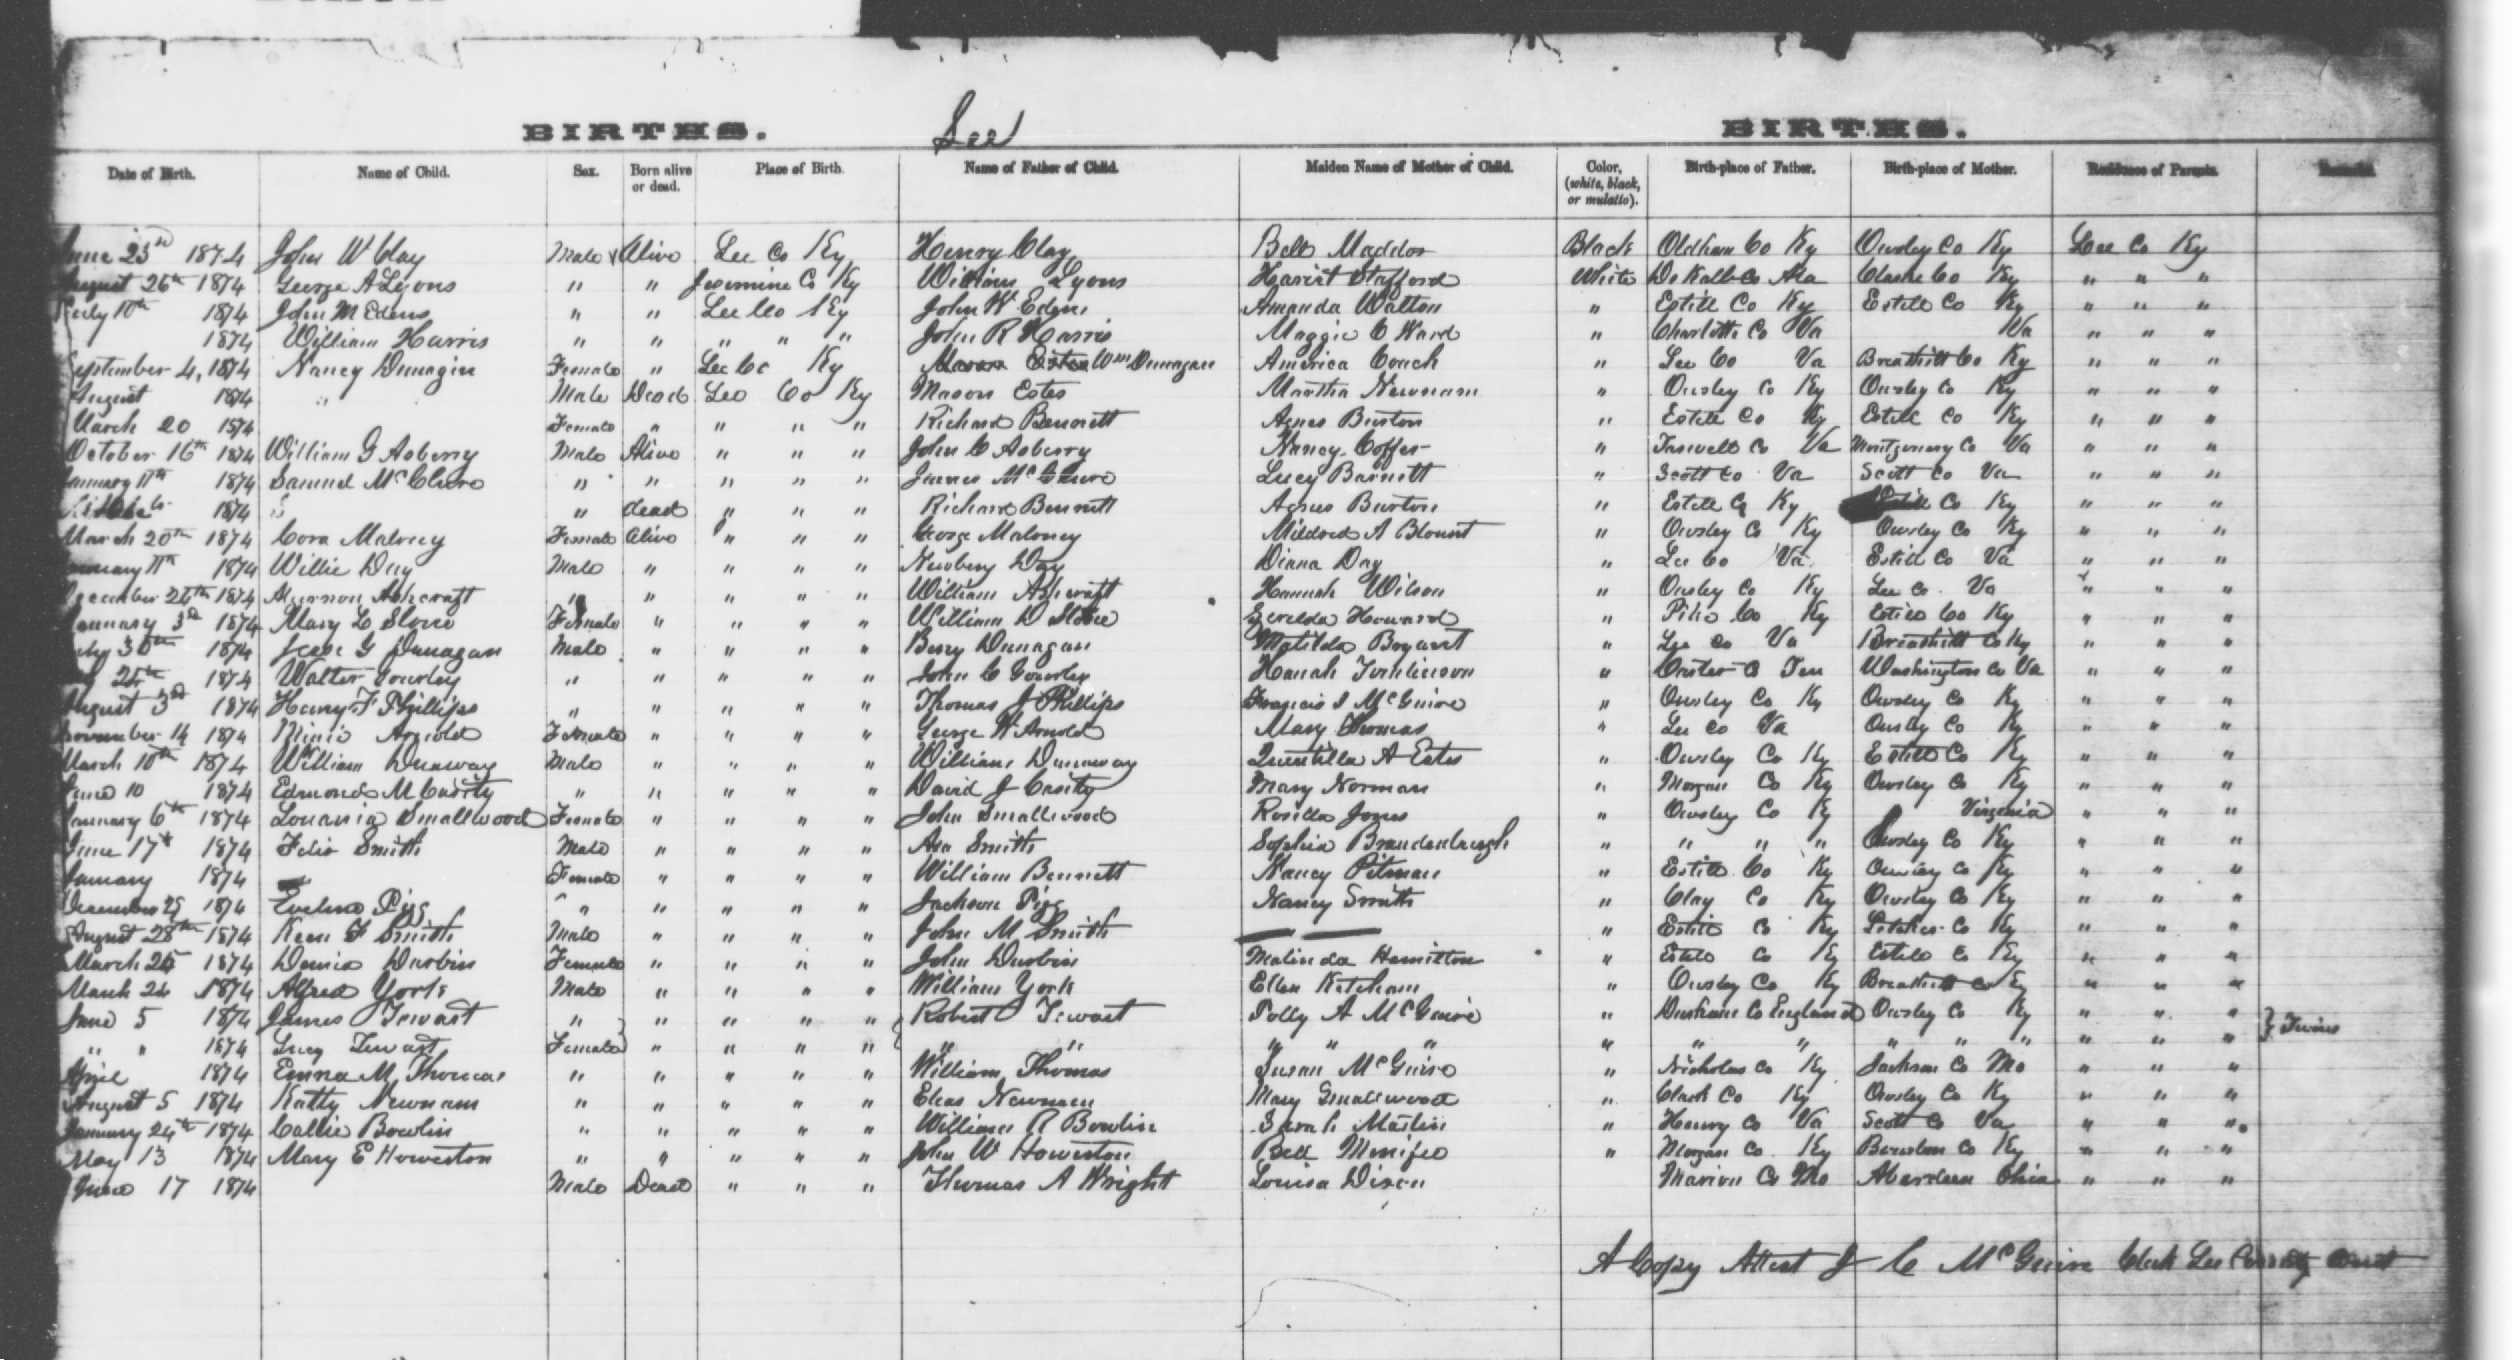 BIRTHS. Lee BIRTHS.
Date of Birth. Name of Child. Sex. Born alive or dead. Place of Birth. Name of Father of Child. Maiden Name of Mother of Child. Color, (white, black, or mulatto). Birth-place of Father. Birth-place of Mother. Residence of Parents.
June 23rd 1874 John W Clay Male Alive Lee Co Ky Henry Clay Bell Maddox Black Oldham Co Ky Owsley Co Ky Lee Co Ky
August 26th 1874 George A Lyons " " Jessmine Co Ky William Lyons Harriet Stafford White DeKalb Co Ala Clarke Co Ky " " "
July 10th 1874 John M Edens " " Lee Co Ky John W Edens Amanda Walton " Estill Co Ky Estill Co Ky " " "
1874 William Harris " " " " " John R Harris Maggie C Ward " Charlotte Co Va Va " " "
September 4, 1874 Nancy Dunagin Female " Lee Co Ky Mason Estes Wm Dunagan America Couch " Lee Co Va Breathitt Co Ky " " "
August 1874 " Male Dead Lee Co Ky Mason Estes Martha Newnam " Owsley Co Ky Owsley Co Ky " " "
March 20 1874 Female " " " " Richard Bennett Agnes Burton " Estill Co Ky Estill Co Ky " " "
October 16th 1874 William G Asberry Male Alive " " " John C Asberry Nancy Coffer " Taswell Co Va Montgomery Co Va " " "
January 11th 1874 Samuel McClure " " " " " James McClure Lucy Barnett " Scott Co Va Scott Co Va " " "
1874 " dead " " " Richard Bennett Agnes Burton " Estill Co Ky Estill Co Ky " " "
March 20th 1874 Cora Maloney Female Alive " " " George Maloney Mildred A Blount " Owsley Co Ky Owsley Co Ky " " "
11th 1874 Willie Day Male " " " " Newberry Day Diana Day " Lee Co Va Estill Co Va " " "
December 26th 1874 Ashcraft " " " " " William Ashcraft Hannah Wilson " Owsley Co Ky Lee Co Va " " "
January 3d 1874 Mary L Slone Female " " " " William D Slone Howard " Pike Co Ky Estill Co Ky " " "
30th 1874 Jesse G Dunagan Male " " " " Berry Dunagan Matilda Bryant " Lee Co Va Breathitt Co Ky " " "
25th 1874 Walter Gourley " " " " " John C Gourley Hanah Tomlinson " Carter Co Ten Washington Co Va " " "
August 3d 1874 Henry F Phillips " " " " " Thomas J Phillips Francis J McGuire " Owsley Co Ky Owsley Co Ky " " "
November 14 1874 Minie Arnold Female " " " " George W Arnold Mary Thomas " Lee Co Va Owsley Co Ky " " "
March 10th 1874 William Dunaway Male " " " " William Dunaway Quentilla A Estes " Owsley Co Ky Estill Co Ky " " "
June 10 1874 Edmond M Casity " " " " " David J Casity Mary Norman " Morgan Co Ky Owsley Co Ky " " "
January 6th 1874 Louania Smallwood Female " " " " John Smallwood Rosella Jones " Owsley Co Ky Virginia " " "
June 17th 1874 Felix Smith Male " " " " Asa Smith Sophia Brandenburgh " " " " Owsley Co Ky " " "
January 1874 Female " " " " William Bennett Nancy Pitman " Estill Co Ky Owsley Co Ky " " "
December 25 1874 Eveline Pigg " " " " " Jackson Pigg Nancy Smith " Clay Co Ky Owsley Co Ky " " "
August 28th 1874 F Smith Male " " " " John M Smith — — " Estill Co Ky Letcher Co Ky " " "
March 25 1874 Durbin Female " " " " John Durbin Malinda Hamilton " Estill Co Ky Estill Co Ky " " "
March 24 1874 Alfred York Male " " " " William York Ellen Ketcham " Owsley Co Ky Breathitt Co Ky " " "
June 5 1874 James Tewart " " " " " Robert Tewart Polly A McGuire " Durham Co England Owsley Co Ky " " " } Twins
" " 1874 Lucy Tewart Female " " " " " " " " " " " " " " " " " "
April 1874 Emma M Thomas " " " " " William Thomas Susan McGuire " Nicholas Co Ky Jackson Co Mo " " "
August 5 1874 Katty Newnam " " " " " Elias Newnam Mary Smallwood " Clark Co Ky Owsley Co Ky " " "
January 24th 1874 Callie Bowlin " " " " " William R Bowlin Sarah Martin " Henry Co Va Scott Co Va " " "
May 13 1874 Mary E Howerton " " " " " John W Howerton Bell Minifee " Morgan Co Ky Bourbon Co Ky " " "
June 17 1874 Male Dead " " " Thomas A Wright Louisa Dixon Marion Co Mo Aberdeen Ohio " " "
A Copy Attest J C McGuire Clerk Lee County Court